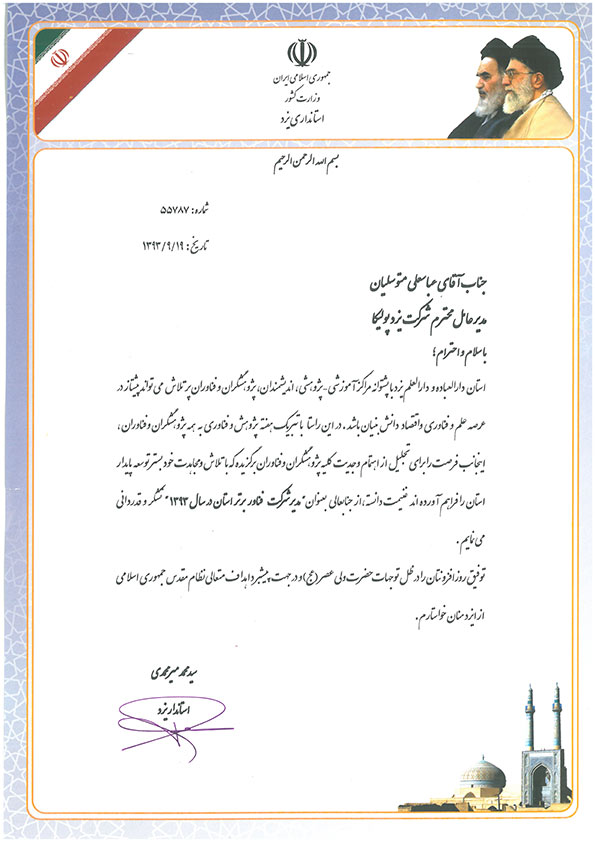 جمهوری اسلامی ایران
وزارت کشور
استانداری یزد
بسم الله الرحمن الرحیم
شماره: ۵۵۷۸۷
تاریخ: ۱۳۹۳/۹/۱۹
جناب آقای عباسعلی متوسلیان
مدیر عامل محترم شرکت یزد پولیکا
با سلام و احترام؛
استان دارالعباده و دارالعلم یزد با پشتوانه مراکز آموزشی-پژوهشی، اندیشمندان، پژوهشگران و فناوران پر تلاش می تواند پیشتاز در
عرصه علم و فناوری و اقتصاد دانش بنیان باشد. در این راستا با تبریک هفته پژوهش و فناوری به همه پژوهشگران و فناوران،
اینجانب فرصت را برای تجلیل از اهتمام و جدیت کلیه پژوهشگران و فناوران برگزیده که با تلاش و مجاهدت خود بستر توسعه پایدار
استان را فراهم آورده اند غنیمت دانسته، از جنابعالی بعنوان "مدیر شرکت فناور برتر استان در سال ۱۳۹۳" تشکر و قدردانی
می نمایم.
توفیق روز افزونتان را در ظل توجهات حضرت ولی عصر (عج) و در جهت پیشبرد اهداف متعالی نظام مقدس جمهوری اسلامی
از ایزد منان خواستارم.
سید محمد میرمحمدی
استاندار یزد